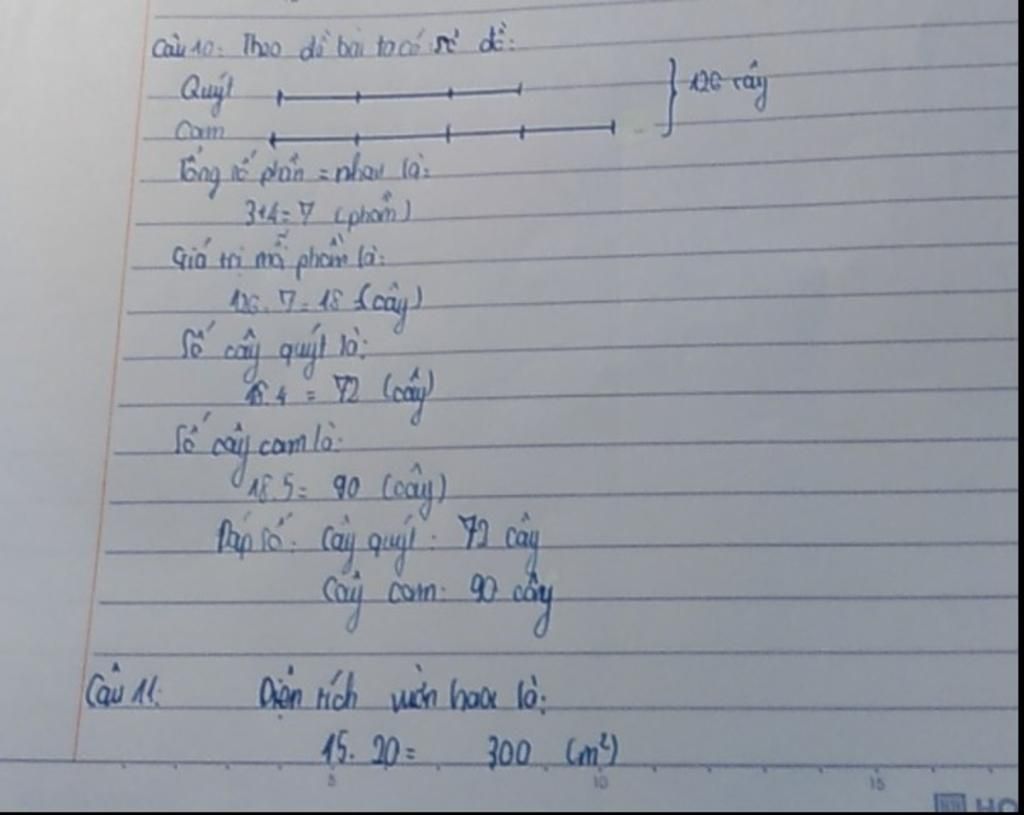 Câu 10: Theo đề bài ta có sơ đồ:
Quýt
Cam
126 cây
Tổng số phần = nhau là:
3+4=7 (phần)
Giá trị mỗi phần là:
126:7=18 (cây)
Số cây quýt là:
18.4 = 72 (cây)
Số cây cam là:
18.5= 90 (cây)
Đáp số: Cây quýt: 72 cây
Cây cam: 90 cây
Câu 11: Diện tích vườn hoa là:
15. 20= 300 (m²)
5 10 15